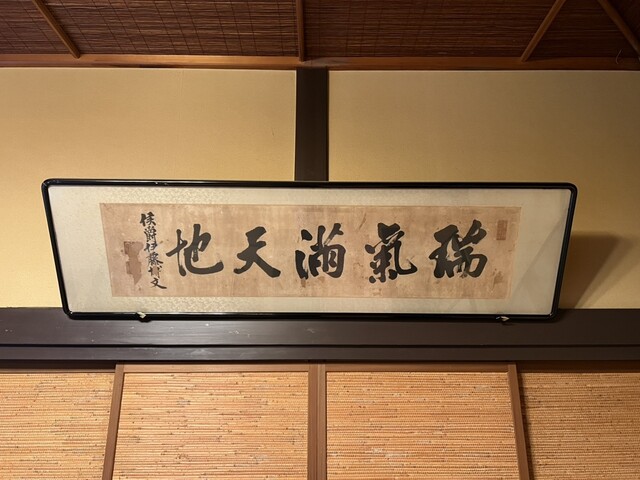 瑞氣滿天地
侯爵伊藤博文